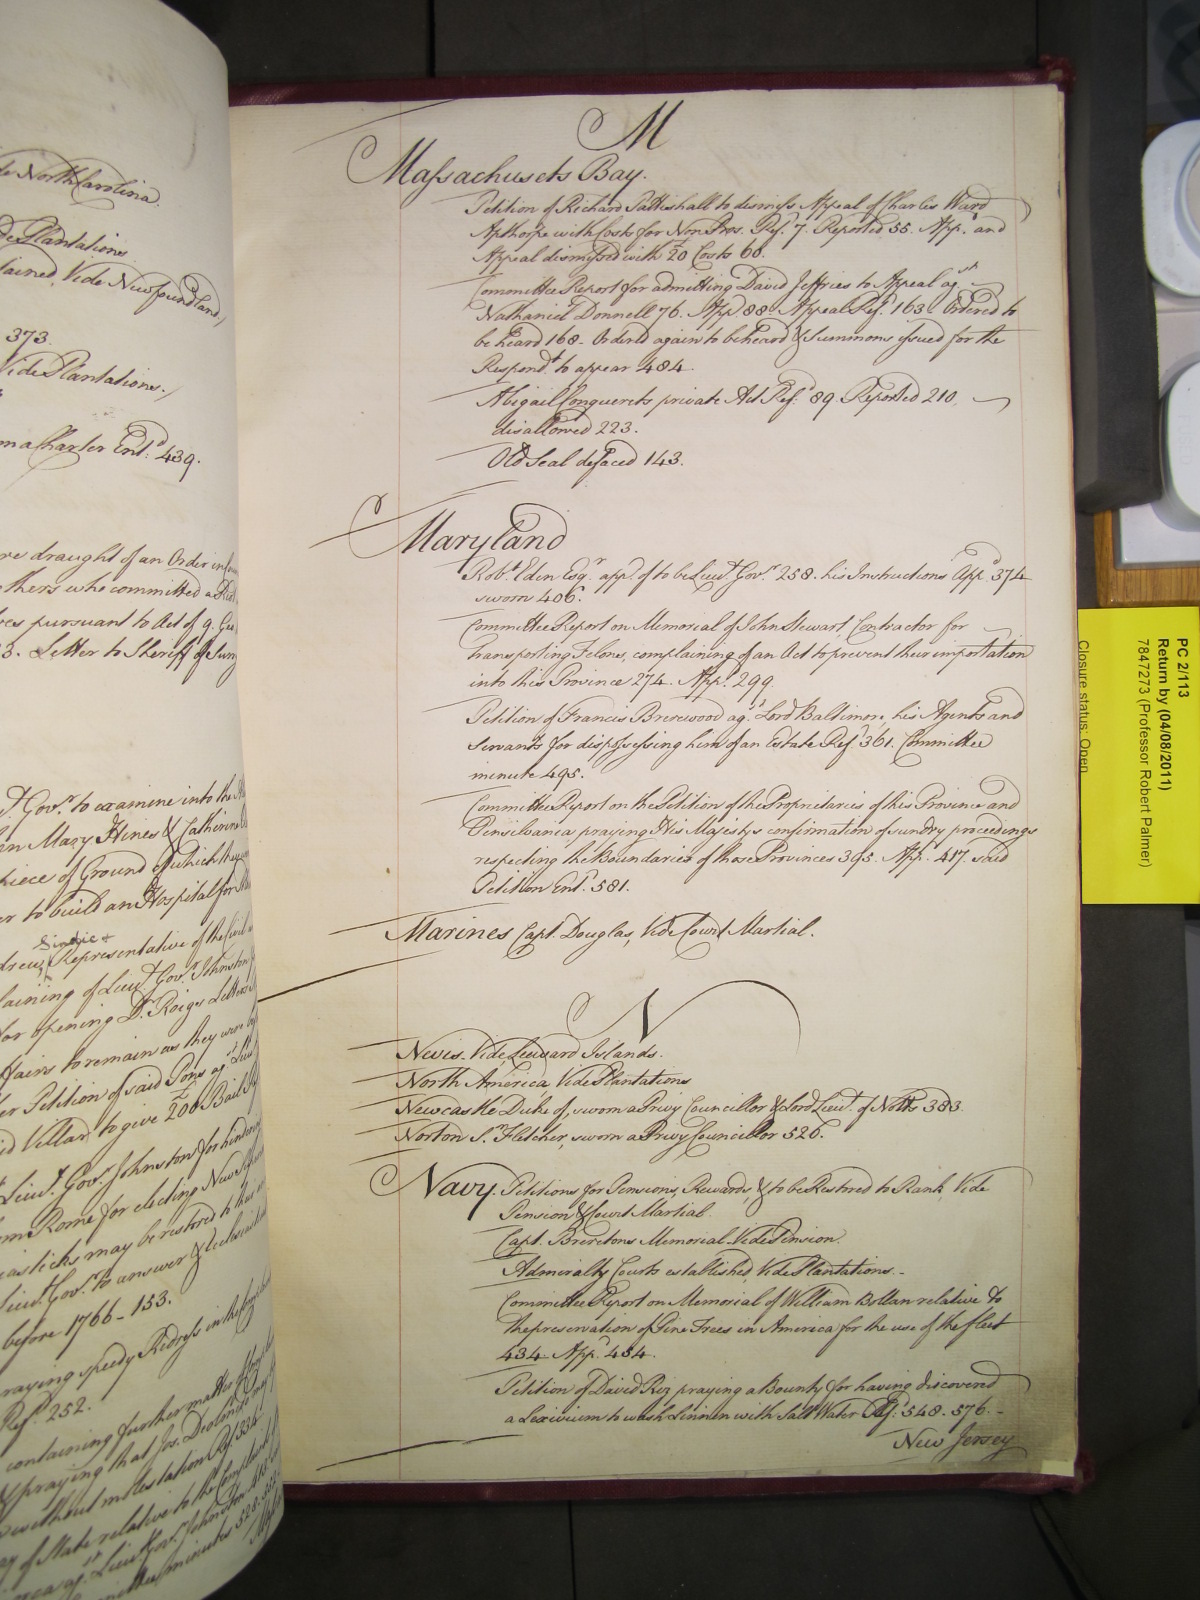 de North Carolina.
de Plantations
tained, Vide Newfoundland,
373.
Vide Plantations.
ma Charter Ent.d 439.
re draught of an Order in
others who committed a
ves pursuant to Act of 9. Geo
3. Letter to Sheriff of Surry
t Gov.r to examine into the
in Mary Hines & Catherine
piece of Ground of which they
er to build an Hospital for
Sindic &
drews, Representative of the Civil
laining of Lieu.t Gov.r Johnston
for opening D.r Roigs Letters
ffairs to remain as they were
er Petition of said Pons ag.t Lieu
id Villar, to give £200 Bail
Lieu.t Gov.r Johnston for hindering
m Rome for electing New
iasticks may be restored to
Lieu.t Gov.r to answer &
before 1766 - 153.
raying speedy Redress in
Ref.d 252.
containing further matter
& praying that Jos.
without molestation Ref.d 334.
y of State relative to the Complaint
orca ag.st Lieu.t Gov.r Johnston
ttee minutes 528.
M
Massachusets Bay.
Petition of Richard Patteshall to dismiss Appeal of Charles Ward
Apthorpe with Costs for Non Pros. Ref.d 7. Reported 55. App.d and
Appeal dismissed with £20 Costs 60.
Committee Report for admitting David Jeffries to Appeal ag.st
Nathaniel Donnell 76. App.d 88. Appeal Ref.d 163. Ordered to
be heard 168. Ordered again to be heard & Summons issued for the
Respond.t to appear 484.
Abigail Conquerets private Act Ref.d 89 Reported 210.
disallowed 223.
Old Seal defaced 143.
Maryland
Rob.t Eden Esq.r app.d of to be Lieu.t Gov.r 258. his Instructions App.d 374
sworn 406.
Committee Report on Memorial of John Stewart, Contractor for
transporting Felons, complaining of an Act to prevent their importation
into this Province 274. App.d 299
Petition of Francis Brerewood ag.t Lord Baltimore, his Agents and
Servants for dispossessing him of an Estate Ref.d 361. Committee
minute 495.
Committee Report on the Petition of the Proprietaries of this Province and
Pensilvania praying His Majesty's confirmation of sundry proceedings
respecting the Boundaries of those Provinces 395. App.d 417. said
Petition Ent.d 581.
Marines Capt. Douglas, Vide Court Martial.
N
Nevis. Vide Leeward Islands.
North America, Vide Plantations
Newcastle Duke of, sworn a Privy Councillor & Lord Lieu.t of Notts 383.
Norton S.r Fletcher, sworn a Privy Councillor 526.
Navy. Petitions for Pensions, Rewards, & to be Restored to Rank, Vide
Pension & Court Martial.
Capt. Breretons Memorial. Vide Pension.
Admiralty Courts established, Vide Plantations.
Committee Report on Memorial of William Bollan relative to
the preservation of Pine Trees in America for the use of the fleet
434. App.d 454.
Petition of David Riz praying a Bounty for having discovered
a Lexivium to wash Linnen with Salt Water Ref.d 548. 576.
New Jersey
PC 2/113
Return by (04/08/2011)
7847273 (Professor Robert Palmer)
Closure status: Open